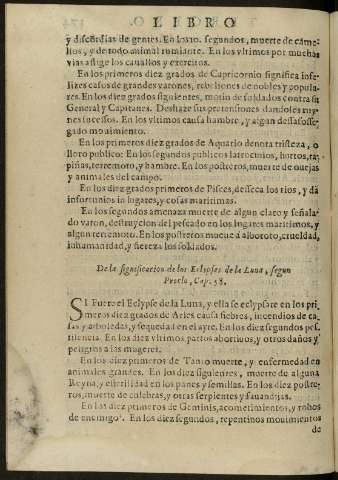 LIBRO
y discordias de gentes. En los 10. segundos, muerte de came-
llos, y de todo animal rumiante. En los vltimos por muchas
vias aflige los cauallos y exercitos.
En los primeros diez grados de Capricornio significa infe-
lizes casos de grandes varones, rebeliones de nobles y popula-
res. En los diez grados siguientes, motin de soldados contra su
General y Capitanes. Deshaze sus pretensiones dandoles ruy-
nes sucessos. En los vltimos causa hambre, y algun desasosse-
gado mouimiento.
En los primeros diez grados de Aquario denota tristeza, o
lloro publico: En los segundos publicos latrocinios, hurtos, ra-
piñas, terremoto, y hambre. En los postreros, muerte de ouejas
y animales del campo.
En los diez grados primeros de Pisces, desseca los rios, y dà
infortunios in lugares, y cosas maritimas.
De los segundos amenaza muerte de algun claro y señala-
do varon, destruycion del pescado en los lugares maritimos, y
algun terremoto. En los postreros mueue à alboroto, crueldad,
inhumanidad, y fiereza los soldados.
De la significacion de los Eclypses de la Luna, segun
Proclo, Cap. 58.
SI Fuere el Eclypse de la Luna, y ella se eclypsare en los pri-
meros diez grados de Aries causa fiebres, incendios de ca-
sas y arboledas, y sequedad en el ayre. En los diez segundos pes-
tilencia. En los diez vltimos partos abortiuos, y otros daños y
peligros a las mugeres.
En los diez primeros de Tauro muerte, y enfermedad en
animales grandes. En los diez siguientes, muerte de alguna
Reyna, y esterilidad en los panes y semillas. En los diez postre-
ros, muerte de culebras, y otras serpientes y sauandijas.
En los diez primeros de Geminis, acometimientos, y robos
de enemigos. En los diez segundos, repentinos mouimientos
de